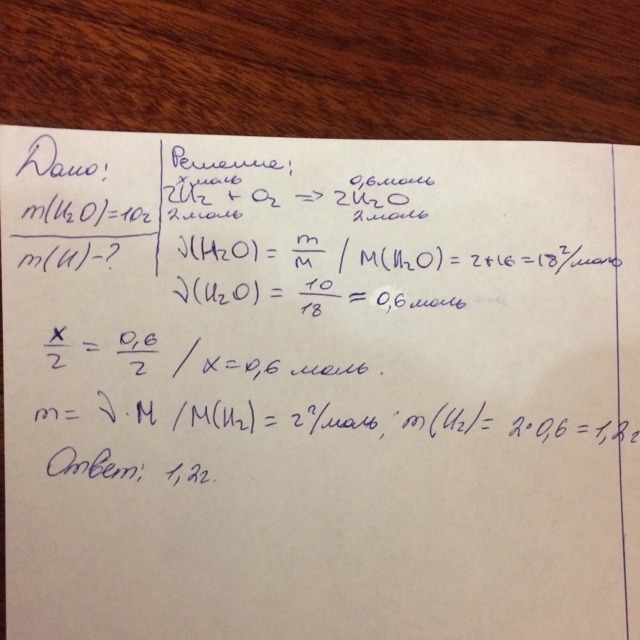 Дано:
m(H₂O)=10г
m(H)-?
Решение:
x моль 0,6 моль
2H₂ + O₂ => 2H₂O
2 моль 2 моль
ν(H₂O) = m/M / M(H₂O) = 2+16 = 18 г/моль
ν(H₂O) = 10/18 ≈ 0,6 моль
x/2 = 0,6/2 / x = 0,6 моль.
m = ν·M / M(H₂) = 2 г/моль; m(H₂) = 2·0,6 = 1,2 г
Ответ: 1,2г.